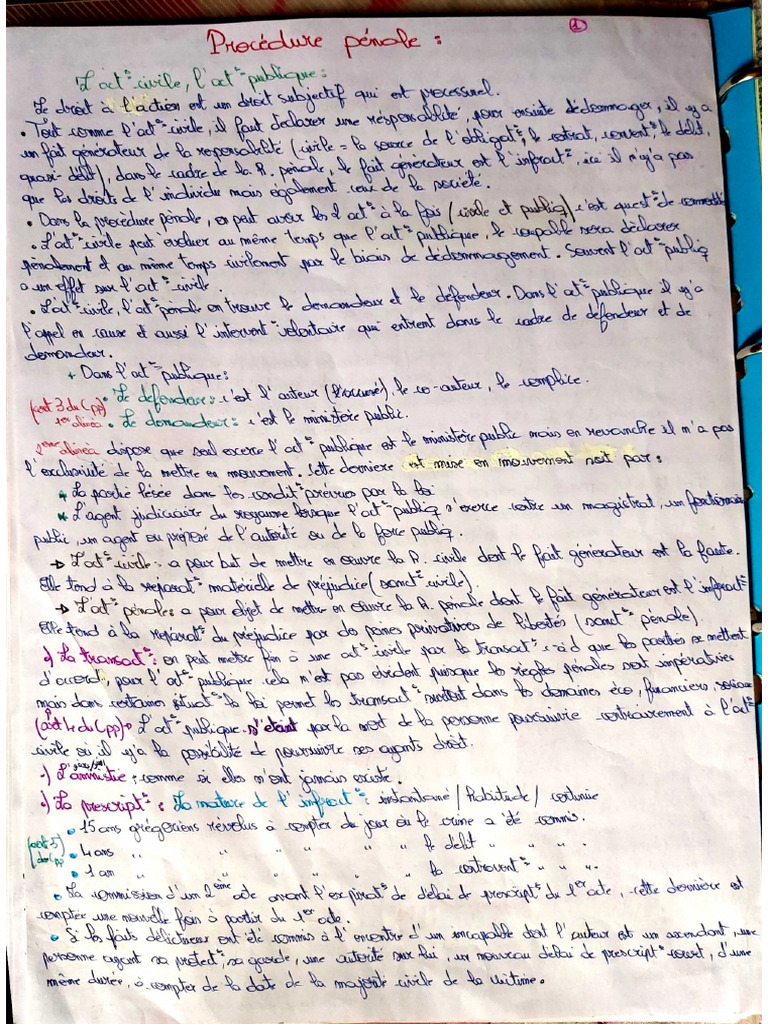 1
Procédure pénale :
L'act° civile, l'act° publique :
Le droit à l'action est un droit subjectif qui est processuel.
• Tout comme l'act° civile, il faut déclarer une résponsablité, pour ensuite dédommager, il y a
un fait générateur de la reponsabilité (civile = la source de l'obligat°, le contrat, convent°, le délit,
quasi-délit), dans le cadre de la R. pénale, le fait générateur est l'infract°, ici il n'y a pas
que les droits de l'individu mais également ceux de la société.
• Dans la procédure pénale, on peut avoir les 2 act° à la fois (civile et publiq) c'est quest° de
• L'act° civile peut évoluer au même temps que l'act° publique, le coupable sera déclarer
pénalement et au même temps civilement par le biais de dédommagement. Souvent l'act° publiq
a un effet sur l'act° civile.
• L'act° civile, l'act° pénale on trouve le demandeur et le défendeur. Dans l'act° publique il y a
l'appel en cause et aussi l'intervent° volontaire qui entrent dans le cadre de defendeur et de
demandeur.
+ Dans l'act° publique :
• Le défendeur : c'est l'auteur (l'accusé), le co-auteur, le complice.
(art 3 du Cpp) • Le demandeur : c'est le ministère public.
1er alinéa
alinéa dispose que seul exerce l'act° publique est le ministère public mais en revanche il n'a pas
l'exclusivité de la mettre en mouvement. Cette dernière est mise en mouvement soit par :
* La partie lésée dans les condit° prévues par la loi
* L'agent judiciaire du royaume lorsque l'act° publiq s'exerce contre un magistrat, un fonctionnaire
public, un agent ou préposé de l'autorité ou de la force publiq.
→ L'act° civile : a pour but de mettre en œuvre la R. civile dont le fait générateur est la faute.
Elle tend à la reparat° matérielle de préjudice (sanct° civile).
→ L'act° pénale : a pour objet de mettre en œuvre la R. pénale dont le fait générateur est l'infract°
Elle tend à la réparat° du préjudice par des peines privatives de libertés (sanct° pénale).
•) La transact° : on peut mettre fin à une act° civile par la transact° c-à-d que les parties se mettent
d'accord, pour l'act° publique cela n'est pas évident puisque les règles pénales sont impératives
mais dans certaines situat° la loi permet les transact° surtout dans les domaines éco, financiers,
(art 4 du Cpp) • L'act° publique s'étant par la mort de la personne poursuivie contrairement à l'act°
civile où il y'a la possibilité de poursuivre ses ayants droit.
•) L'amnistie : comme si elles n'ont jamais existé.
•) La prescript° : La nature de l'infract° : instantané / habitude / continue
• 15 ans grégoriens révolus à compter du jour où le crime a été commis.
(art 5 du Cpp) • 4 ans " " " " " le délit " " "
• 1 an " " " " " la contravent° " " "
• La commission d'un 2ème acte avant l'expirat° de délai de prescript° du 1er acte, cette dernière est
comptée une nouvelle fois à partir du 1er acte.
• Si les faits délictueux ont été commis à l'encontre d'un incapable dont l'auteur est un ascendant, une
personne ayant sa protect°, sa garde, une autorité sur lui, un nouveau délai de prescript° court, d'une
même durée, à compter de la date de la majorité civile de la victime.